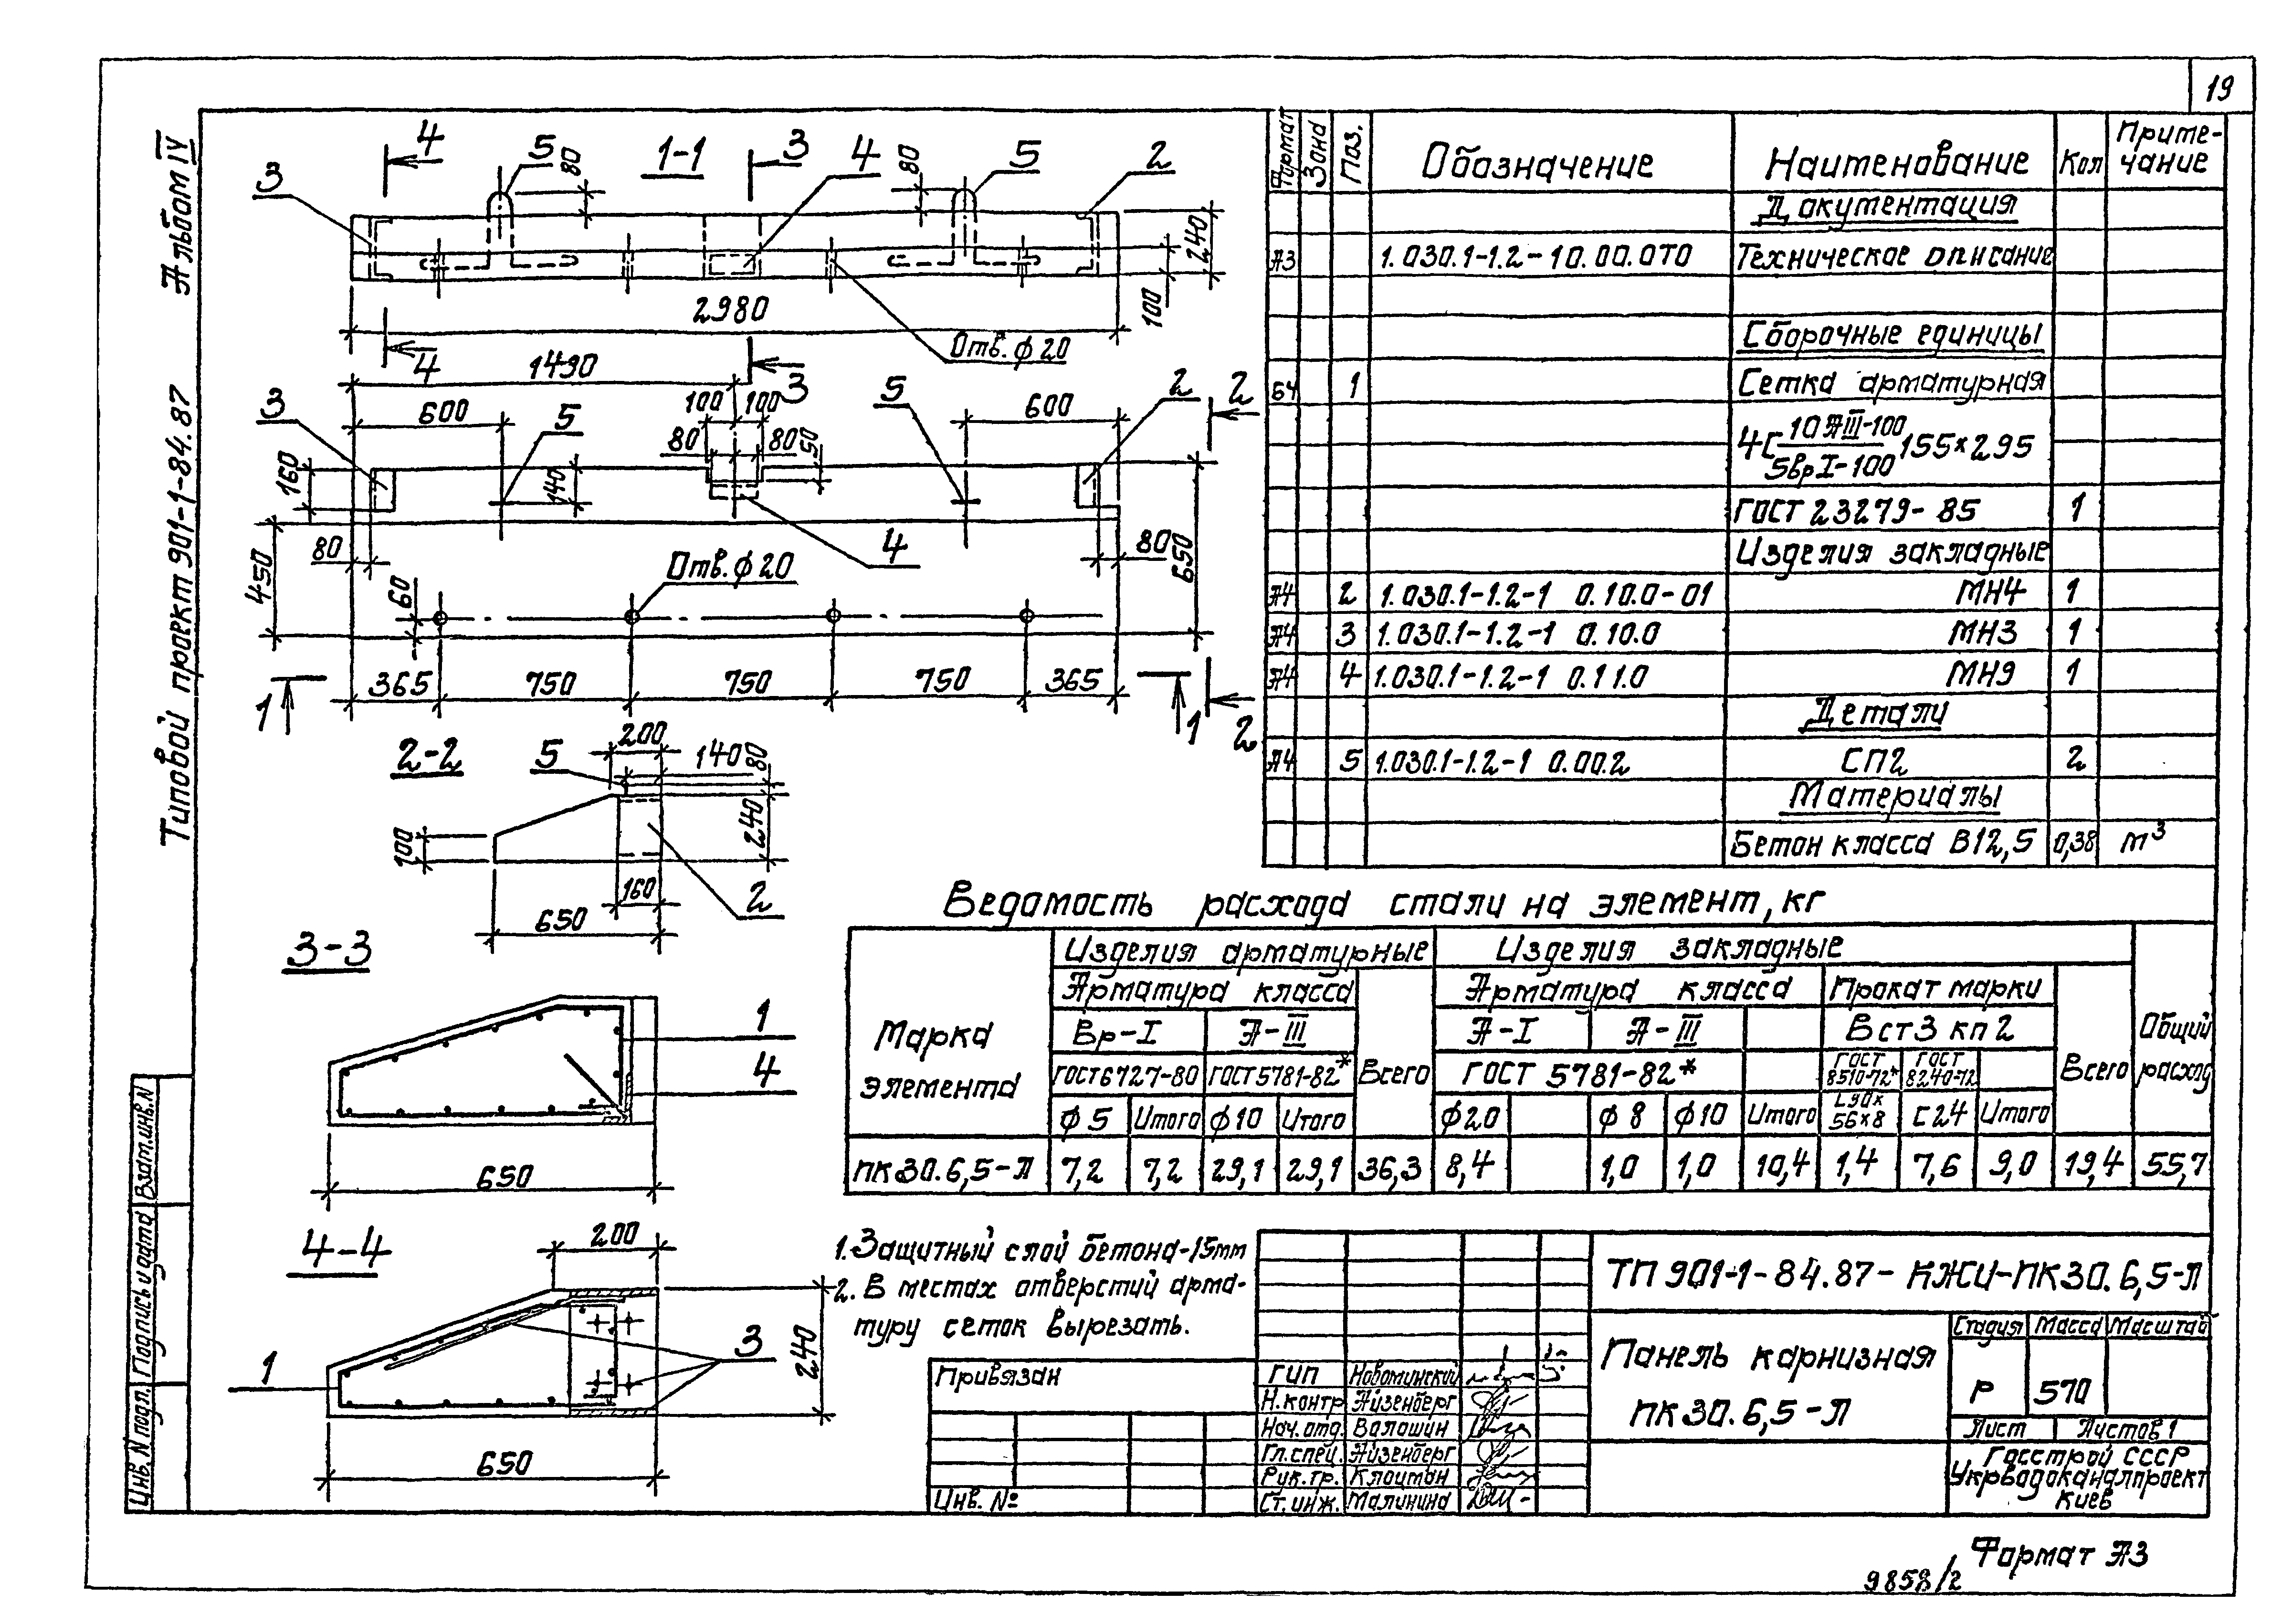 19
Альбом IV
Типовой проект 901-1-84.87
Взам.инв.N
Подпись и дата
Инв. N подл.
1-1
4 5 80 3 4 80 5 2
3
240
100
2980
Отв. ф 20
4
1490
3
600 100 100 600
3 5 80 80 50 5 2 2
160 140
450 80 4 80 650
60 Отв. ф 20
365 750 750 750 365
1 1 2
2-2
5 200 140 80
100 240
160 2
650
3-3
1
4
650
4-4
200
3
1
240
650
Формат Зона Поз. Обозначение Наименование Кол Приме-
чание
Документация
А3 1.030.1-1.2-10.00.0ТО Техническое описание
Сборочные единицы
БЧ 1 Сетка арматурная
4С 10АIII-100 / 5ВрI-100 155×295
ГОСТ 23279-85 1
Изделия закладные
А4 2 1.030.1-1.2-1 0.10.0-01 МН4 1
А4 3 1.030.1-1.2-1 0.10.0 МН3 1
А4 4 1.030.1-1.2-1 0.11.0 МН9 1
Детали
А4 5 1.030.1-1.2-1 0.00.2 СП2 2
Материалы
Бетон класса В12,5 0,38 м³
Ведомость расхода стали на элемент, кг
Марка элемента
Изделия арматурные Изделия закладные
Арматура класса Арматура класса Прокат марки
Вр-I А-III Всего А-I А-III Вст3 кп2 Всего Общий расход
ГОСТ6727-80 ГОСТ5781-82* ГОСТ 5781-82* ГОСТ 8510-72* ГОСТ 8240-72
ф 5 Итого ф 10 Итого ф 20 ф 8 ф 10 Итого L90×56×8 С24 Итого
ПК30.6,5-Л 7,2 7,2 29,1 29,1 36,3 8,4 1,0 1,0 10,4 1,4 7,6 9,0 19,4 55,7
1. Защитный слой бетона-15мм
2. В местах отверстий арма-
туру сеток вырезать.
Привязан
Инв. №
ГИП Новоминский
Н.контр Айзенберг
Нач.отд. Волошин
Гл.спец. Айзенберг
Рук.гр. Клоцман
Ст.инж. Малинина
ТП 901-1-84.87-КЖИ-ПК30.6,5-Л
Панель карнизная
ПК30.6,5-Л
Стадия Масса Масштаб
Р 570
Лист Листов 1
Госстрой СССР
Укрводоканалпроект
Киев
Формат А3
9858/2